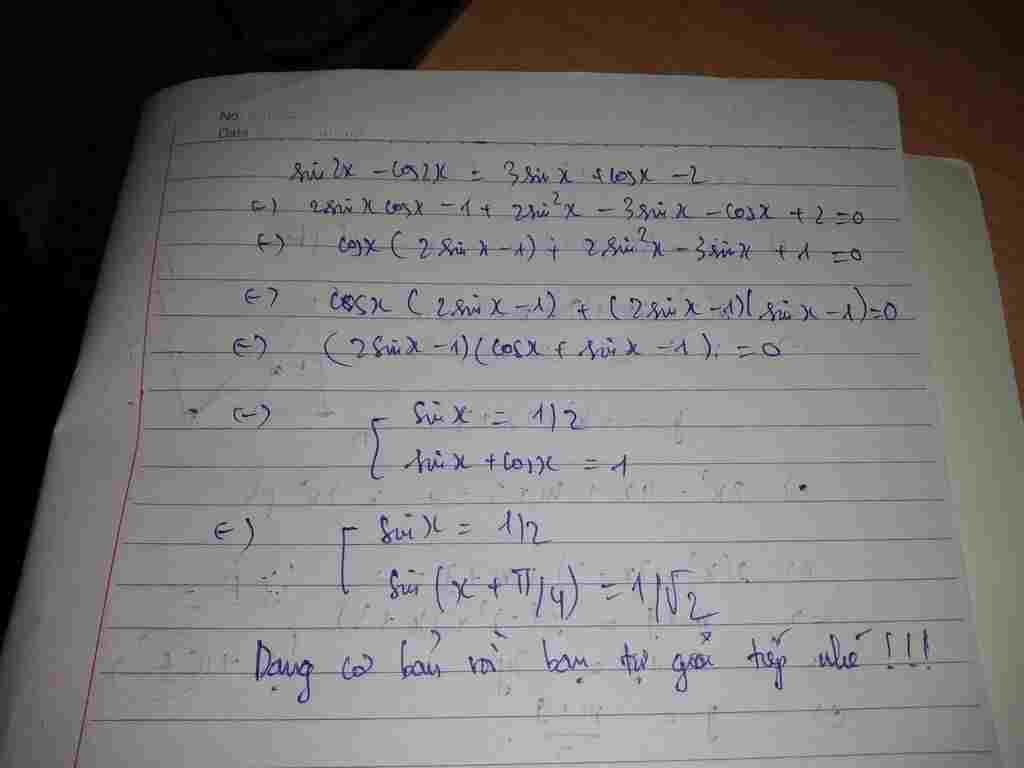 No
Date
sin2x - cos2x = 3sinx + cosx - 2
(-) 2sinx cosx - 1 + 2sin²x - 3sinx - cosx + 2 = 0
(-) cosx ( 2sinx - 1) + 2sin²x - 3sinx + 1 = 0
(-) cosx ( 2sinx - 1) + (2sinx - 1)(sinx - 1) = 0
(-) (2sinx - 1)(cosx + sinx - 1) = 0
(-) [ sinx = 1/2
sinx + cosx = 1
(-) [ sinx = 1/2
sin(x + π/4) = 1/√2
Dạng cơ bản rồi bạn tự giải tiếp nhé !!!